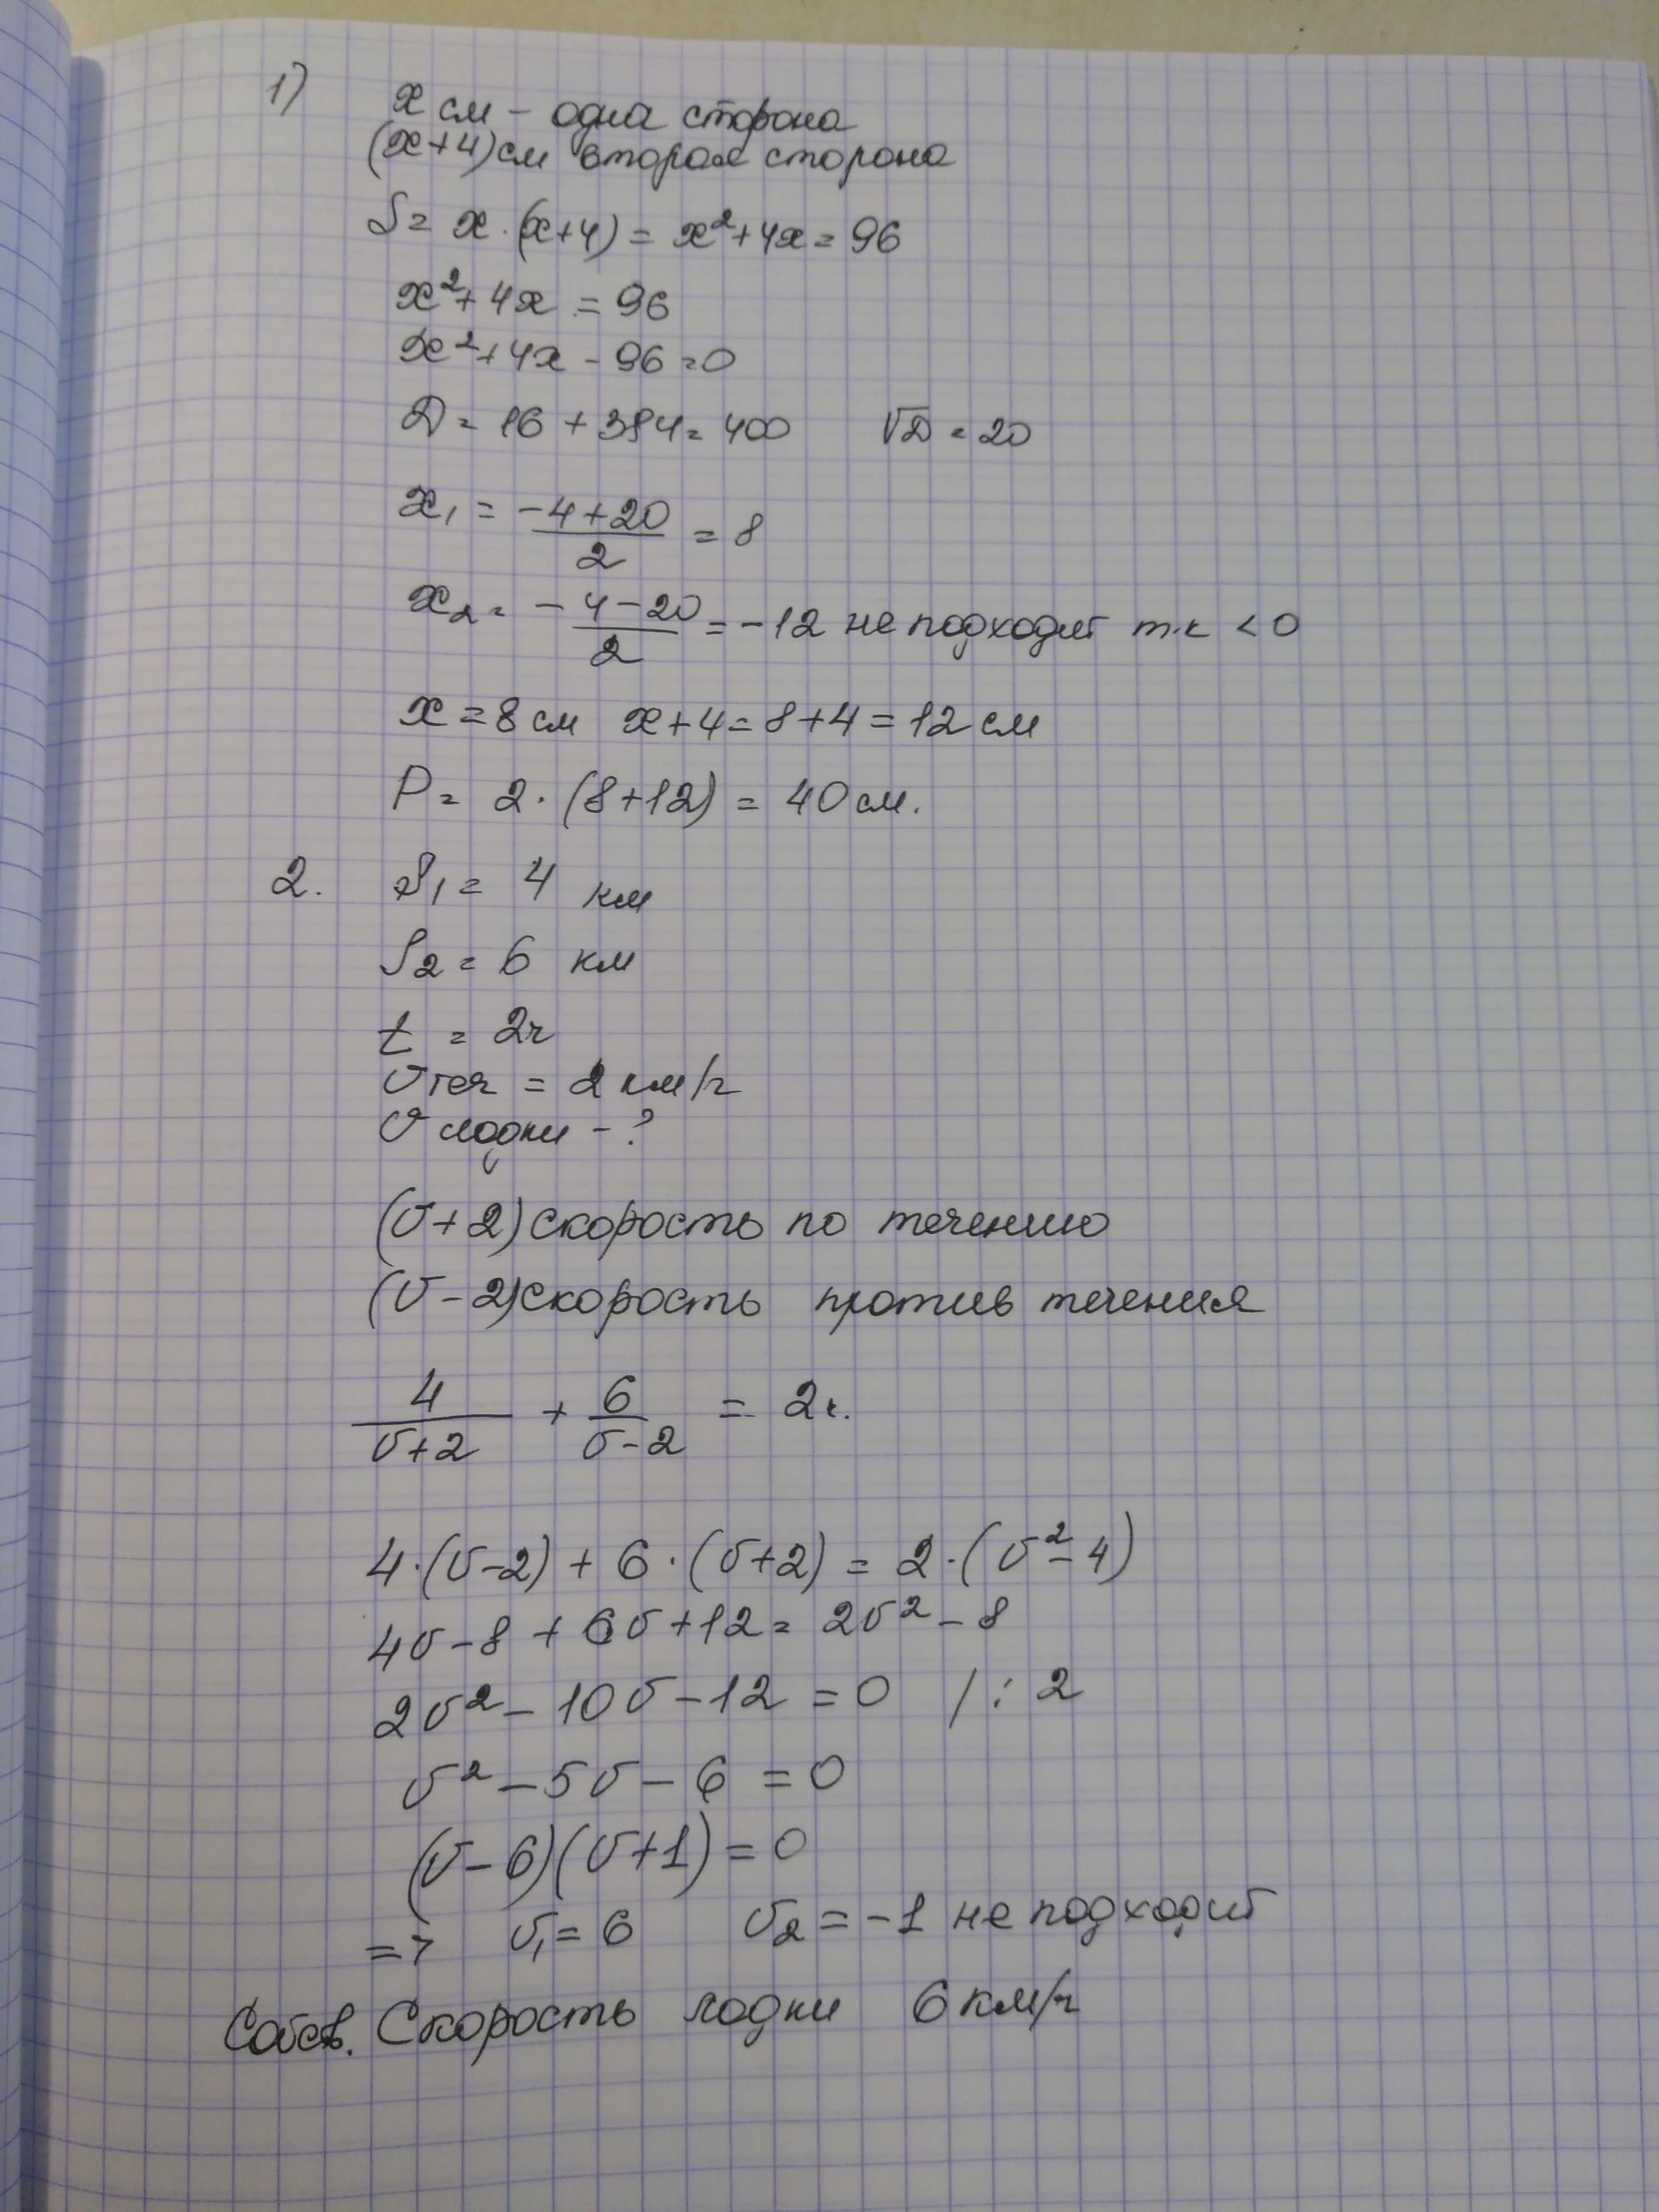 1)
x см - одна сторона
(x+4) см вторая сторона
S = x · (x+4) = x² + 4x = 96
x² + 4x = 96
x² + 4x - 96 = 0
D = 16 + 384 = 400 √D = 20
x₁ = (-4+20)/2 = 8
x₂ = -(4-20)/2 = -12 не подходит т.к < 0
x = 8 см x+4 = 8+4 = 12 см
P = 2 · (8+12) = 40 см.
2. S₁ = 4 км
S₂ = 6 км
t = 2ч
υ теч = 2 км/ч
υ лодки - ?
(υ+2) скорость по течению
(υ-2) скорость против течения
4/(υ+2) + 6/(υ-2) = 2ч.
4·(υ-2) + 6·(υ+2) = 2·(υ²-4)
4υ - 8 + 6υ + 12 = 2υ² - 8
2υ² - 10υ - 12 = 0 / : 2
υ² - 5υ - 6 = 0
(υ-6)(υ+1) = 0
=> υ₁ = 6 υ₂ = -1 не подходит
Собств. Скорость лодки 6 км/ч